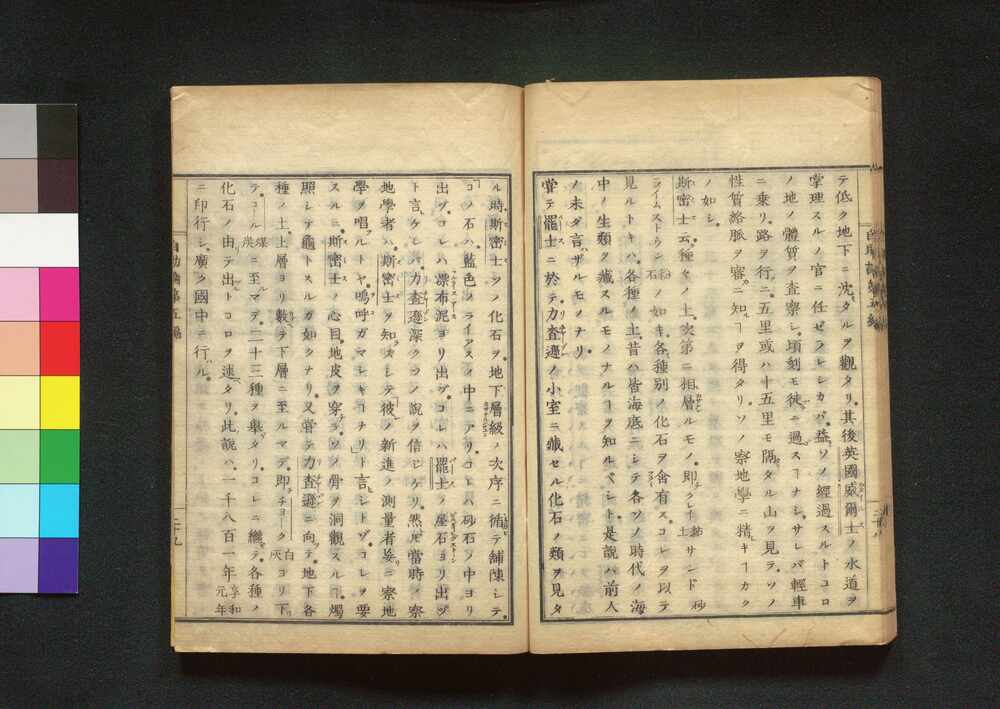 テ低ク地下ニ沈タルヲ觀タリ。其後英國威爾士ノ水道ヲ
掌理スルノ官ニ任ゼラレシカバ。益ソノ經過スルトコロ
ノ地ノ體質ヲ査察シ。頃刻モ徒ニ過スヿナシ。サレバ輕車
ニ乘リ。路ヲ行ニ。五里或ハ十五里モ隔タル山ヲ見テ。ソノ
性質絡脈ヲ審ニ知ヿヲ得タリ。ソノ察地學ニ精キヿカク
ノ如シ。
斯密士云。種々ノ土。次第ニ相層ルモノ。即クレイ 粘土 サンド 砂
ライムストウン 石 ノ如キ。各種別ノ化石ヲ含有ス。コレヲ以テ
見ルトキハ。各種ノ土。昔ハ皆海底ニシテ。各ソノ時代ノ海
中ノ生類ヲ藏スルモノナルヿヲ知ルベシト。是說ハ。前人
ノ未ダ言ザルモノナリ。
嘗テ罷士ニ於テ。力査遜ノ小室ニ藏セル化石ノ類ヲ見タ
ル時。斯密士ソノ化石ヲ。地下層級ノ次序ニ循テ鋪陳シテ。
「コノ石ハ。藍色ノライアスノ中ニアリ。コレハ砂石ノ中ヨリ
出ヅ。コレハ漂布泥ヨリ出ヅ。コレハ罷士ノ屋石ヨリ出ヅ」
ト言ケレバ。力査遜深クコノ說ヲ信ジケリ。然レドモ當時ノ察
地學者ハ。斯密士ヲ知ズシテ。「彼ノ新進ノ測量者。妄ニ察地
學ヲ唱ルトヤ。嗚呼ガマシキヿナリ」ト言シトゾ。コレヲ要
スルニ。斯密士ノ心目。地皮ヲ穿テ。ソノ骨ヲ洞觀スルヿ。燭
照シテ龜トスルガ如クナリ。又嘗テ力査遜ニ向テ。地下各
種ノ土。上層ヨリ數テ下層ニ至ルマデ。即チョーク 白灰 ヨリ下
テ。コール 煤炭 ニ至マデ。二十三種ヲ舉タリ。コレニ繼テ。各種ノ
化石ノ由テ出トコロヲ速タリ。此說ハ。一千八百一年 享和元年
ニ印行シ。廣ク國中ニ行ハル。